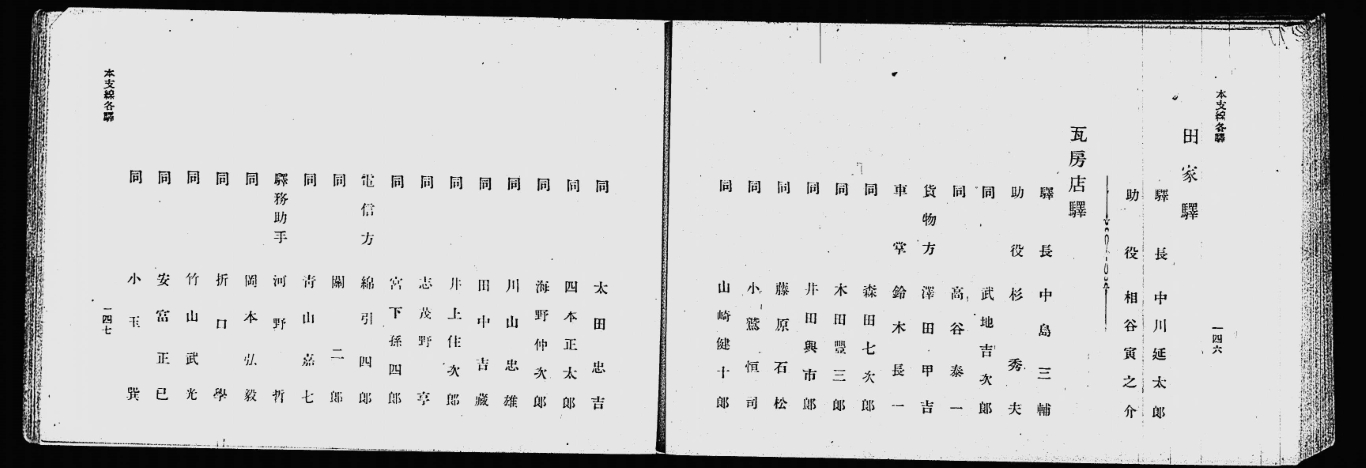 本支線各驛
田家驛
驛長 中川延太郎
助役 相谷寅之介
瓦房店驛
驛長 中島三輔
助役 杉秀夫
同 武地吉次郎
同 高谷泰一
貨物方 澤田甲吉
車掌 鈴木長一
同 森田七次郎
同 木田豐三郎
同 井田興市郎
同 藤原石松
同 小鷲恒司
同 山崎健十郎
一四六
同 太田忠吉
同 四本正太郎
同 海野仲次郎
同 川山忠雄
同 田中吉藏
同 井上住次郎
同 志茂野亨
同 宮下孫四郎
電信方 綿引四郎
同 關二郎
同 靑山嘉七
驛務助手 河野哲
同 岡本弘毅
同 折口學
同 竹山武光
同 安富正巳
同 小玉巽
本支線各驛
一四七